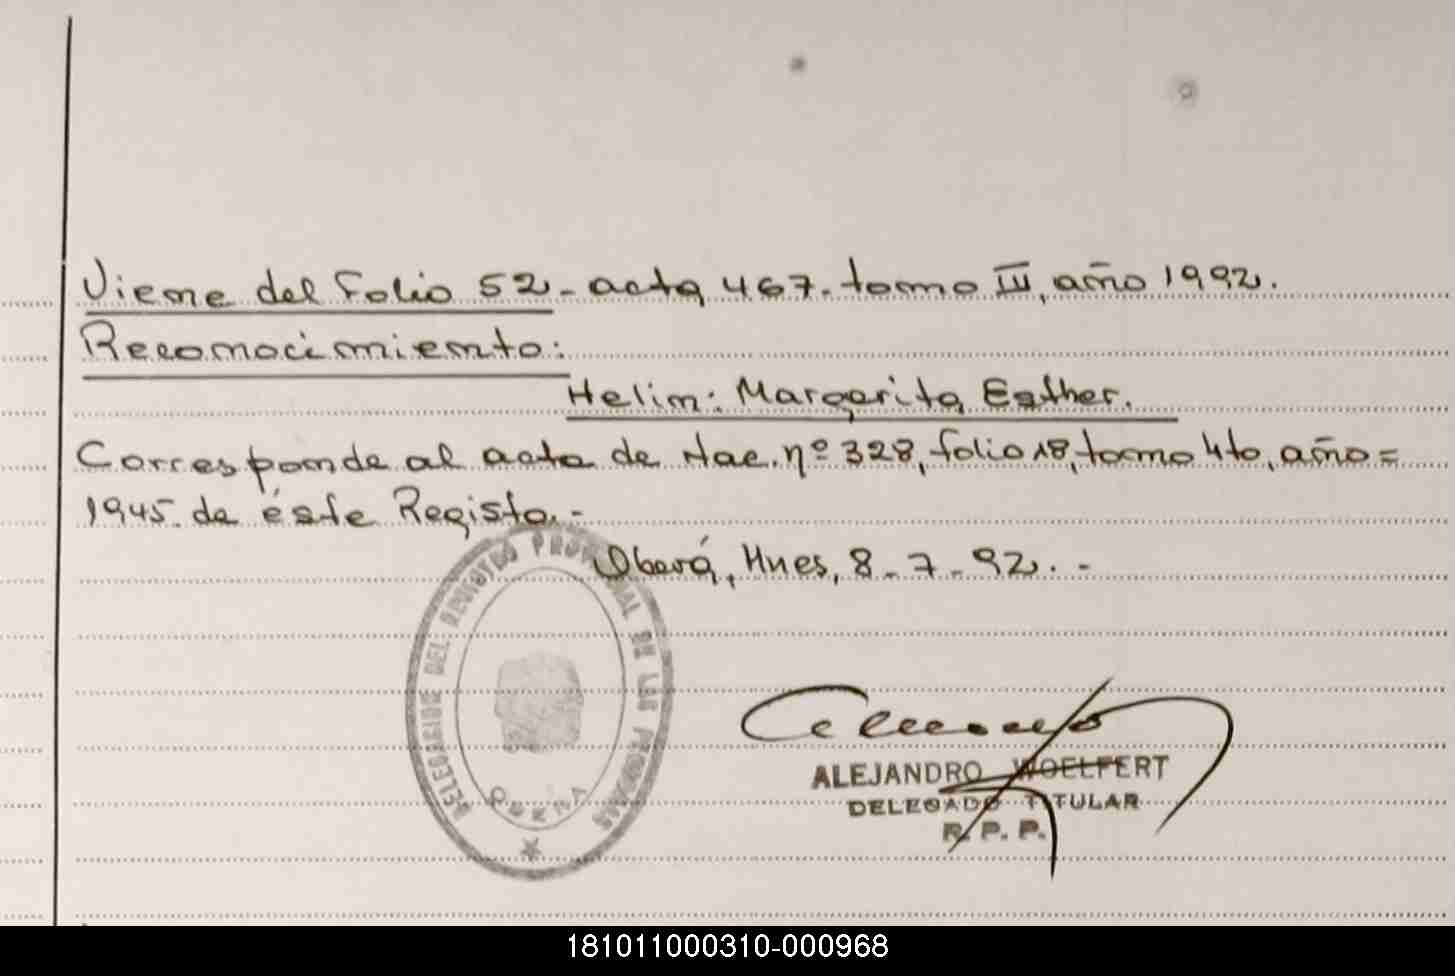 Viene del Folio 52 - acta 467. tomo III, año 1992.
Reconocimiento:
Helim: Margarita Esther.
Corresponde al acta de Nac. nº 328, folio 18, tomo 4to, año =
1945. de éste Registo. -
Oberá, Mnes, 8 - 7 - 92. -
DELEGACION DEL REGISTRO PROVINCIAL DE LAS PERSONAS
OBERA
ALEJANDRO WOELFERT
DELEGADO TITULAR
R. P. P.
181011000310-000968